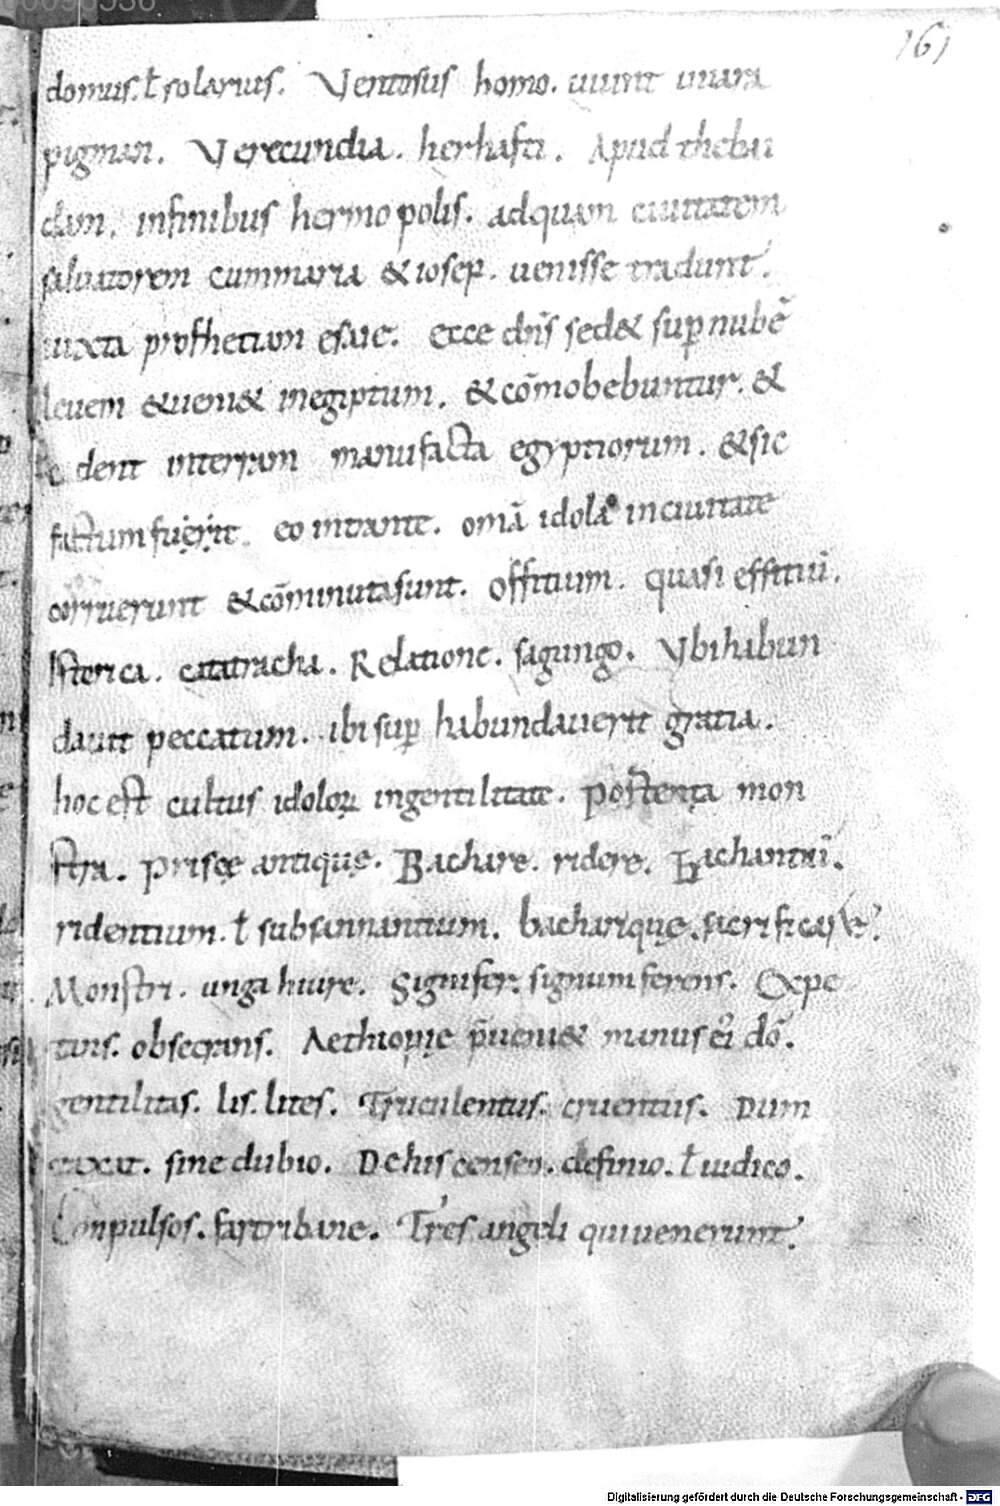 161
domus. ł solarius. Ventosus homo. uuint uuara
pigman. Verecundia. herhafti. Apud thebai
dam. infinibus hermopolis. adquam ciuitatem
saluatorem cummaria & iosep. uenisse tradunt.
iuxta profhetiam esaie. ecce dn̄s sed& sup nubē
leuem &ueni& inegiptum. &cōmobebuntur. &
dent interram manufacta egyptiorum. &sic
factum fuerit eo intrante. omā idola inciuitate
corruerunt &cōminutasunt. offitium. quasi effitiū.
Istorica. catatracha. Relatione. sagungo. Vbihabun
dauit peccatum. ibi sup habundauerit gratia.
hoc est cultus idoloꝝ ingentilitate. postenta mon
stra. prisce antique. Bachare. ridere. bachantiū.
ridentium. ł subsannantium. bacharique. sacrificare.
Monstri. ungahiure. Signifer. signumferens. Expe
tens. obsecrans. Aethiopie p̄ueni& manus ei dō.
gentilitas. lis. lites. Truculentus. cruentus. Dum
taxat. sine dubio. Dehiscenseo. definio. ł iudico.
Conpulsos. fartribane. Tres angeli quiuenerunt.
Digitalisierung gefördert durch die Deutsche Forschungsgemeinschaft - DFG